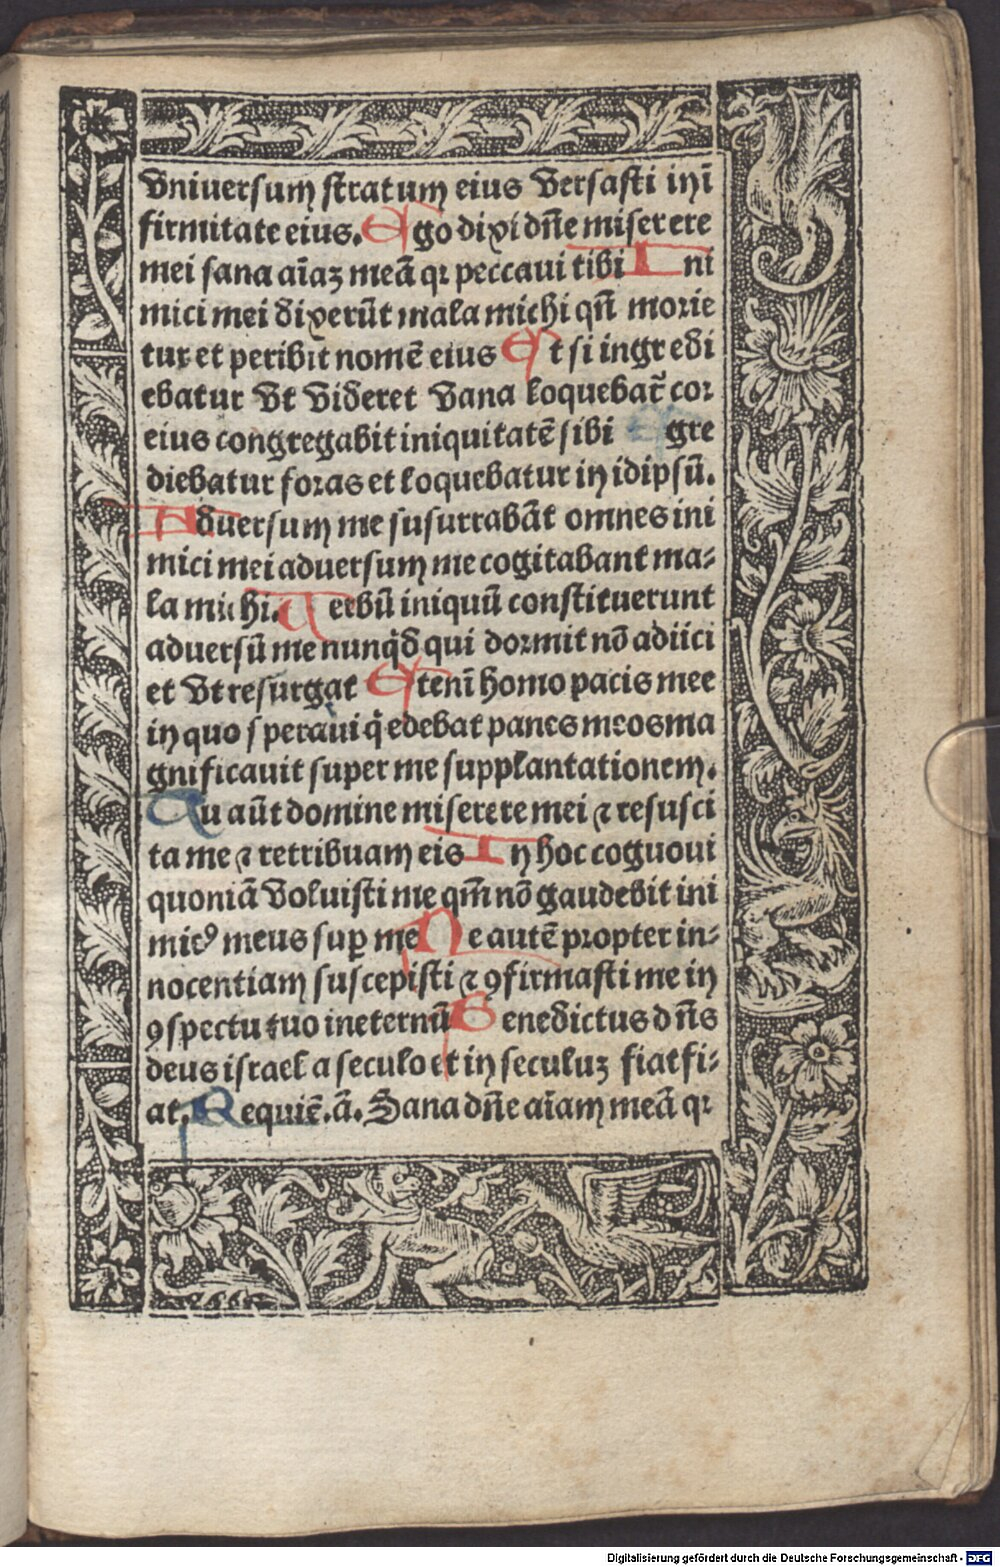 vniuersum stratum eius versasti in ī
firmitate eius. Ego dixi dn̄e miserere
mei sana aīaꝫ meā qꝛ peccaui tibi Ini
mici mei dixerūt mala michi qn̄ morie
tur et peribit nomē eius Et si ingredi
ebatur vt videret vana loquebat̄ cor
eius congregabit iniquitatē sibi Egre
diebatur foras et loquebatur in idipsū.
Aduersum me susurrabāt omnes ini
mici mei aduersum me cogitabant ma-
la michi. Uerbū iniquū constituerunt
aduersū me nunq̄d qui dormit nō adiici
et vt resurgat Etenī homo pacis mee
in quo speraui q̄ edebat panes meos ma
gnificauit super me supplantationem.
Tu aūt domine miserere mei ⁊ resusci
ta me ⁊ retribuam eis In hoc coguoui
quoniā voluisti me qm̄ nō gaudebit ini
micꝰ meus suꝑ me Ne autē propter in-
nocentiam suscepisti ⁊ ꝯfirmasti me in
ꝯspectu tuo in eternū Benedictus dn̄s
deus israel a seculo et in seculuꝫ fiat fi-
at. Requiē.ā. Sana dn̄e aīam meā qꝛ
Digitalisierung gefördert durch die Deutsche Forschungsgemeinschaft - DFG